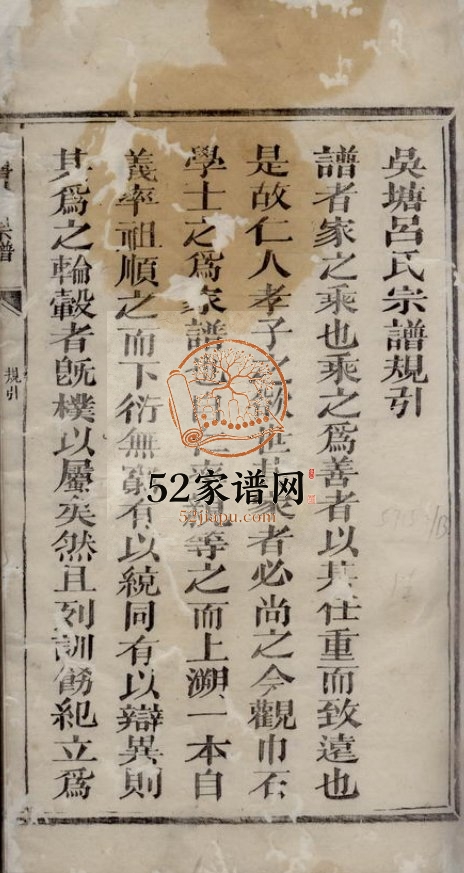 吳塘呂氏宗譜規引
譜者家之乘也乘之為善者以其任重而致遠也
是故仁人孝子之欲世其家者必尚之今觀巾石
學士之為家譜也自仁率親等之而上溯一本自
義率祖順之而下衍無窮有以統同有以辯異則
其爲之輪轂者旣樸以屬矣然且列訓飭紀立爲
宗譜
規引
52家谱网
52jiapu.com